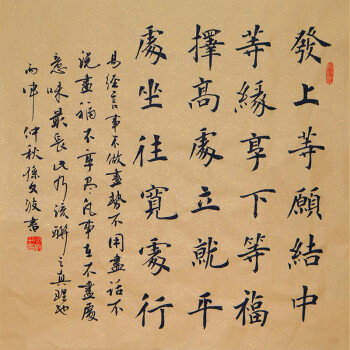 發上等願結中
等緣享下等福
擇高處立就平
處坐往寬處行
易經言事不做盡勢不用盡話不
說盡福不享尽凡事在不盡處
意味最長此乃該聯之真理也
丙申仲秋孫文波書